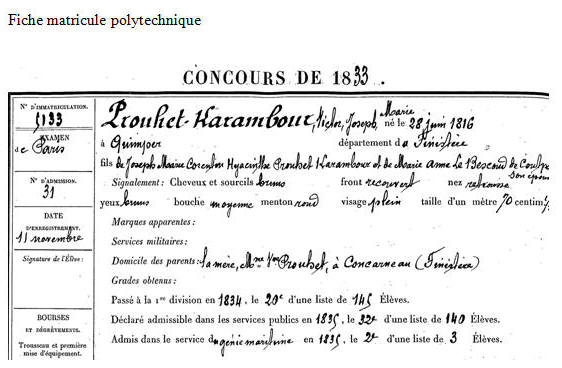 Fiche matricule polytechnique
CONCOURS DE 1833.
N° D'IMMATRICULATION.
5133
EXAMEN
de Paris
N° D'ADMISSION.
31
DATE
D'ENREGISTREMENT.
11 novembre
Signature de l'Élève :
BOURSES
ET DÉGRÈVEMENTS.
Trousseau et première
mise d'équipement.
Prouhet-Karambour, Victor, Joseph, Marie né le 28 juin 1816
à Quimper département du Finistère
fils de Joseph Marie Corentin Hyacinthe Prouhet Karambour et de Marie Anne Le Bescond de Coatpont son épouse
Signalement : Cheveux et sourcils bruns front recouvert nez retroussé
yeux bruns bouche moyenne menton rond visage plein taille d'un mètre 70 centim
Marques apparentes :
Services militaires :
Domicile des parents : sa mère, Mme Vve Prouhet, à Concarneau (Finistère)
Grades obtenus :
Passé à la 1re division en 1834, le 20e d'une liste de 145 Élèves.
Déclaré admissible dans les services publics en 1835, le 32e d'une liste de 140 Élèves.
Admis dans le service du génie maritime en 1835, le 2e d'une liste de 3 Élèves.